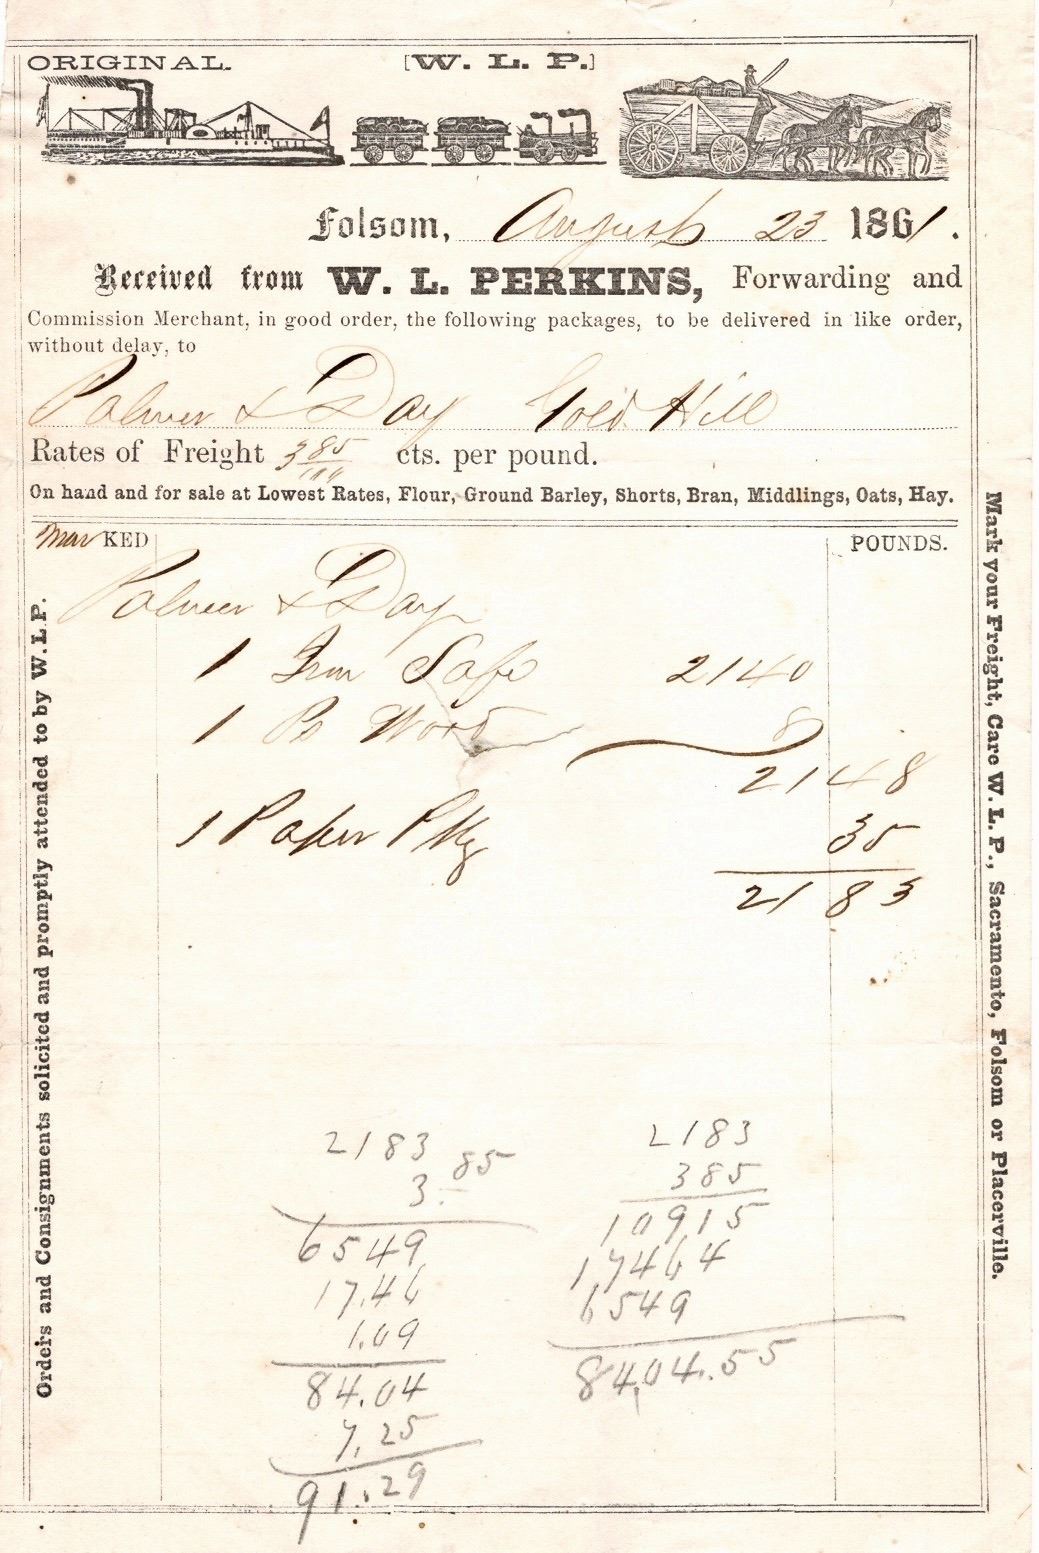 ORIGINAL.
[W. L. P.]
Folsom, August 23 1861.
Received from W. L. PERKINS, Forwarding and
Commission Merchant, in good order, the following packages, to be delivered in like order,
without delay, to
Palmer & Day Gold Hill
Rates of Freight 3 85/100 cts. per pound.
On hand and for sale at Lowest Rates, Flour, Ground Barley, Shorts, Bran, Middlings, Oats, Hay.
MarKED POUNDS.
Palmer & Day
1 Iron Safe 2140
1 Pc Wood 8
2148
1 Paper Pkg 35
2183
2183
3.85
6549
17.46
1.09
84.04
7.25
91.29
2183
385
10915
17464
6549
84,04.55
Orders and Consignments solicited and promptly attended to by W. L P.
Mark your Freight, Care W. L. P., Sacramento, Folsom or Placerville.